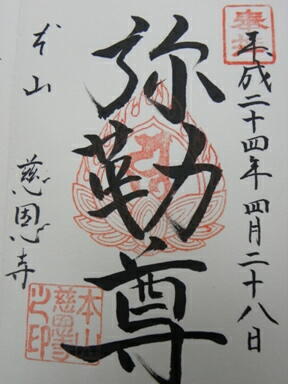 奉拝
平成二十四年四月二十八日
弥勒尊
本山
慈恩寺
本山
慈恩寺
之印